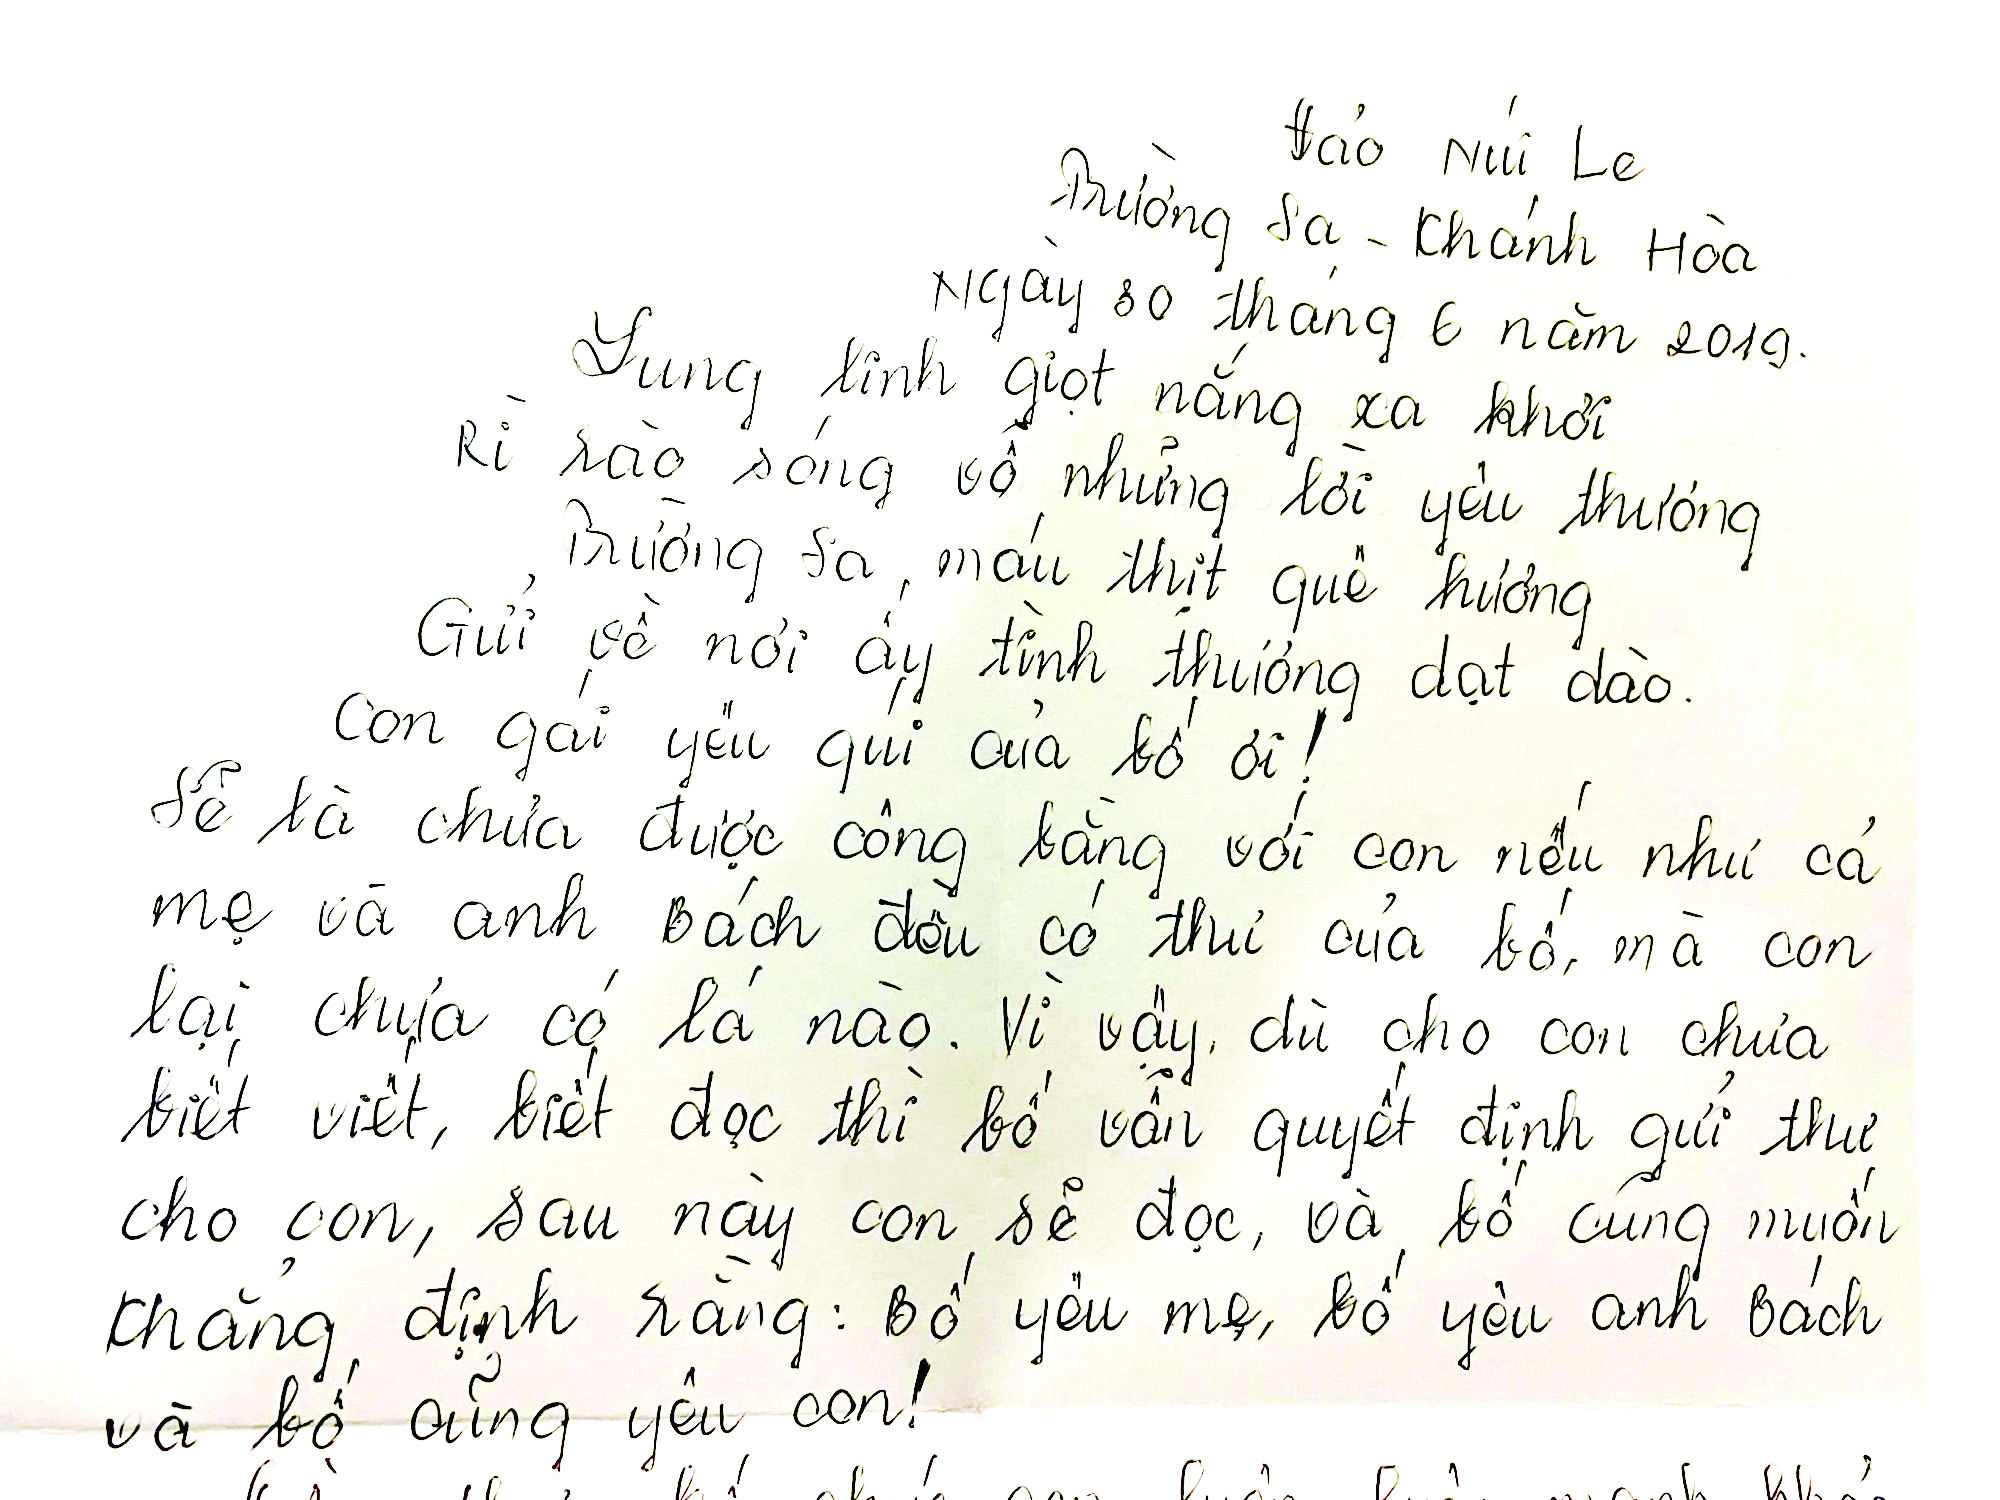 Đảo Núi Le
Trường Sa - Khánh Hòa
Ngày 30 tháng 6 năm 2019.
Lung linh giọt nắng xa khơi
Rì rào sóng vỗ những lời yêu thương
Trường Sa, máu thịt quê hương
Gửi về nơi ấy tình thương dạt dào.
Con gái yêu quí của bố ơi!
Sẽ là chưa được công bằng với con nếu như cả
mẹ và anh Bách đều có thư của bố, mà con
lại chưa có lá nào. Vì vậy, dù cho con chưa
biết viết, biết đọc thì bố vẫn quyết định gửi thư
cho con, sau này con sẽ đọc, và bố cũng muốn
khẳng định rằng: Bố yêu mẹ, bố yêu anh Bách
và bố cũng yêu con!